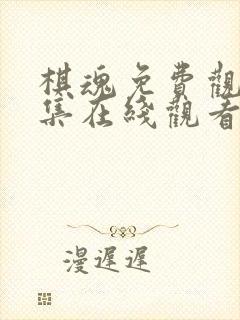 棋魂免費觀
集在綫觀看
漫遲遲